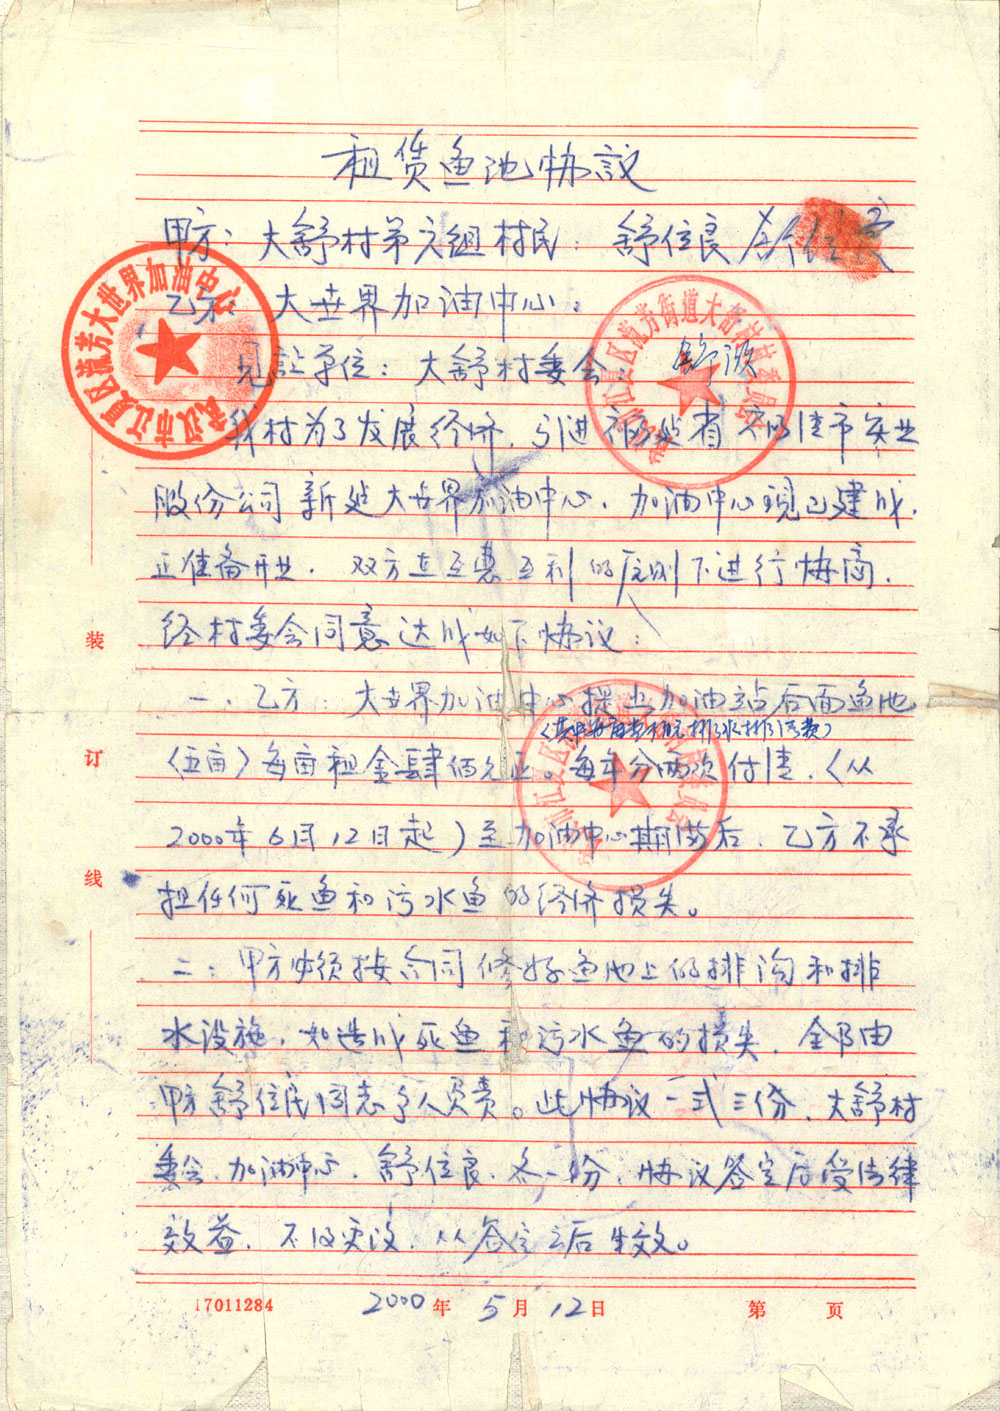 租赁鱼池协議
甲方：大舒村第六组村民：舒位良
乙方：大世界加油中心：
见证单位：大舒村委会：
我村为了发展经济，引进福建省福清市实业
股份公司新建大世界加油中心，加油中心现已建成，
正准备开业，双方在互惠互利的原则下进行协商，
经村委会同意达成如下协议：
一、乙方：大世界加油中心 加油站后面鱼池
（五亩）每亩租金肆佰元正。每年分两次付清，（从
2000年6月12日起）至加油中心期满后，乙方不承
担任何死鱼和污水鱼的经济损失。
二：甲方必须按合同修好鱼池上的排沟和排
水设施，如造成死鱼和污水鱼的损失，全部由
甲方舒位良同志个人负责。此协议一式三份，大舒村
委会、加油中心、舒位良，各一份，协议签定后受法律
效益，不得更改，从签定之后生效。
17011284 2000年5月12日 第 页
装
订
线
武汉市江夏区流芳大世界加油中心
江夏区流芳街道大舒村村委员会